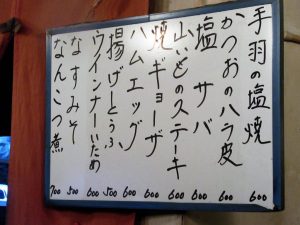 手羽の塩焼 600
かつおのハラ皮 600
塩サバ 600
山いものステーキ 600
焼ギョーザ 600
ハムエッグ 600
揚げとうふ 500
ウインナーいため 600
なすみそ 500
なんこつ煮 700